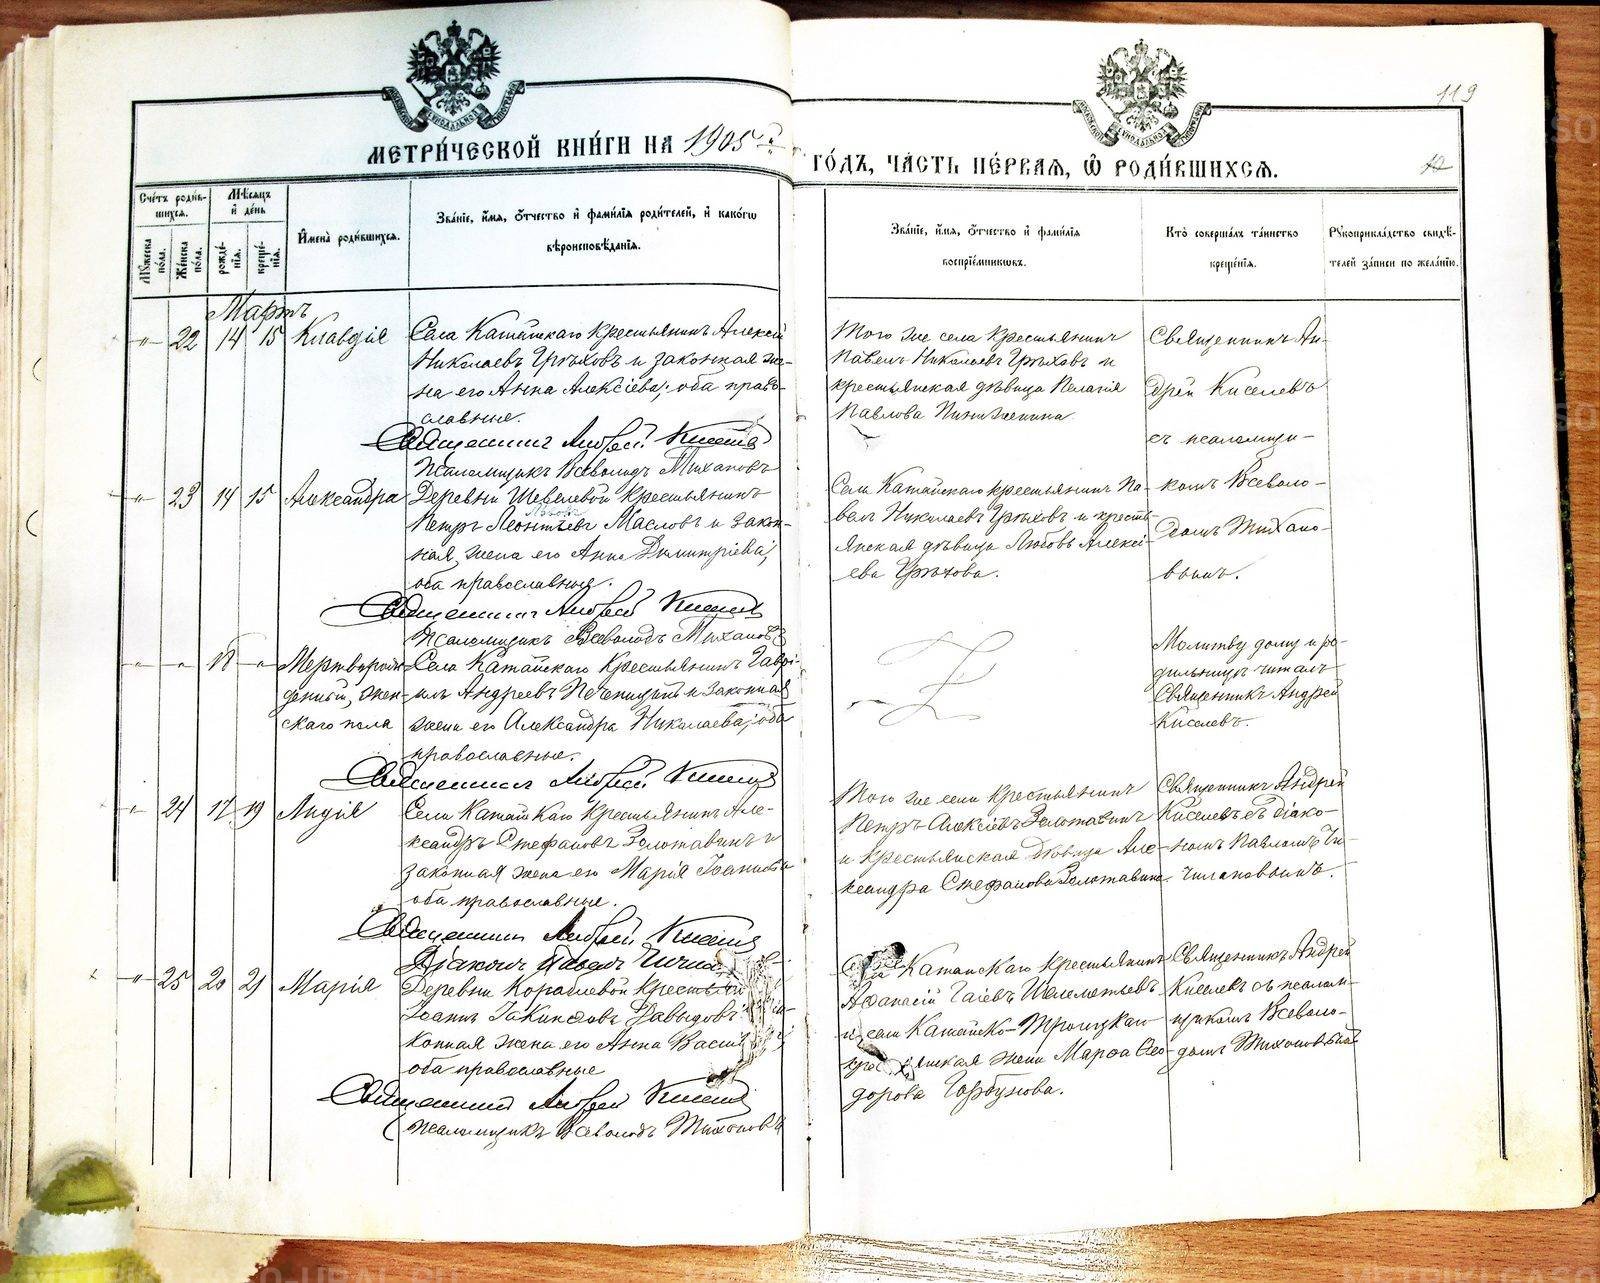 119
МЕТРИ́ЧЕСКОЙ КНИ́ГИ НА 1905
ГО́ДЪ, ЧА́СТЬ ПЕ́РВАЯ, Ѡ РОДИ́ВШИХСЯ.
12
Сче́тъ роди́в-
шихся.
Му́жеска по́ла.
Же́нска по́ла.
Мѣ́сяцъ
и де́нь
рожде́-
нія.
креще́-
нія.
И҆мена̀ роди́вшихся.
Зва́ніе, и҆́мя, ѻ҆́тчество и҆ фами́лія роди́телей, и҆ како́гѡ
вѣроисповѣ́данія.
Зва́ніе, и҆́мя, ѻ҆́тчество и҆ фами́лія
воспріе́мниковъ.
Кто̀ соверша́лъ та́инство
креще́нія.
Рꙋкоприкла́дство свидѣ́-
телей за́писи по жела́нію.
Мартъ
-"- 22 14 15 Клавдія
Села Катайскаго крестьянинъ Алексѣй
Николаевъ Грѣховъ и законная же-
на его Анна Алексіева; оба право-
славные.
Священникъ Андрей Киселевъ
Псаломщикъ Всеволодъ Тихановъ
Того же села крестьянинъ
Павелъ Николаевъ Грѣховъ и
крестьянская дѣвица Пелагія
Павлова
Священникъ Ан-
дрей Киселевъ
съ псаломщи-
комъ Всеволо-
домъ Тихано-
вымъ.
-"- 23 14 15 Александра
Деревни Шевелевой крестьянинъ
Петръ Леонтьевъ Масловъ и закон-
ная жена его Анна Димитріева;
оба православные.
Священникъ Андрей Киселевъ
Псаломщикъ Всеволодъ Тихановъ
Села Катайскаго крестьянинъ Па-
велъ Николаевъ Грѣховъ и кресть-
янская дѣвица Любовь Алексі-
ева Грѣхова.
-"- -"- 17 -"- Мертворож-
денный, жен-
скаго пола
Села Катайскаго крестьянинъ Гаврі-
илъ Андреевъ и законная
жена его Александра Николаева; оба
православные.
Священникъ Андрей Киселевъ
Молитву дому и ро-
дильницѣ читалъ
Священникъ Андрей
Киселевъ.
-"- 24 17 19 Лидія
Села Катайскаго крестьянинъ Але-
ксандръ Стефановъ Золотавинъ и
законная жена его Марія Іоаннова
оба православные.
Священникъ Андрей Киселевъ
Діаконъ Павелъ
Того же села крестьянинъ
Петръ Алексіевъ Золотавинъ
и крестьянская дѣвица Але-
ксандра Стефанова Золотавина.
Священникъ Андрей
Киселевъ съ діако-
номъ Павломъ
-"- 25 20 21 Марія
Деревни Кораблевой крестьянинъ
Іоаннъ Іакинѳовъ Давыдовъ
конная жена его Анна
оба православные
Священникъ Андрей Киселевъ
Псаломщикъ Всеволодъ Тихоновъ
Села Катайскаго крестьянинъ
Аѳанасій Гаіевъ Шелеметьевъ
и села Катайско-Троицкаго
жена Марѳа Ѳео-
дорова Горбунова.
Священникъ Андрей
Киселевъ съ псалом-
щикомъ Всеволо-
домъ Тихоновымъ